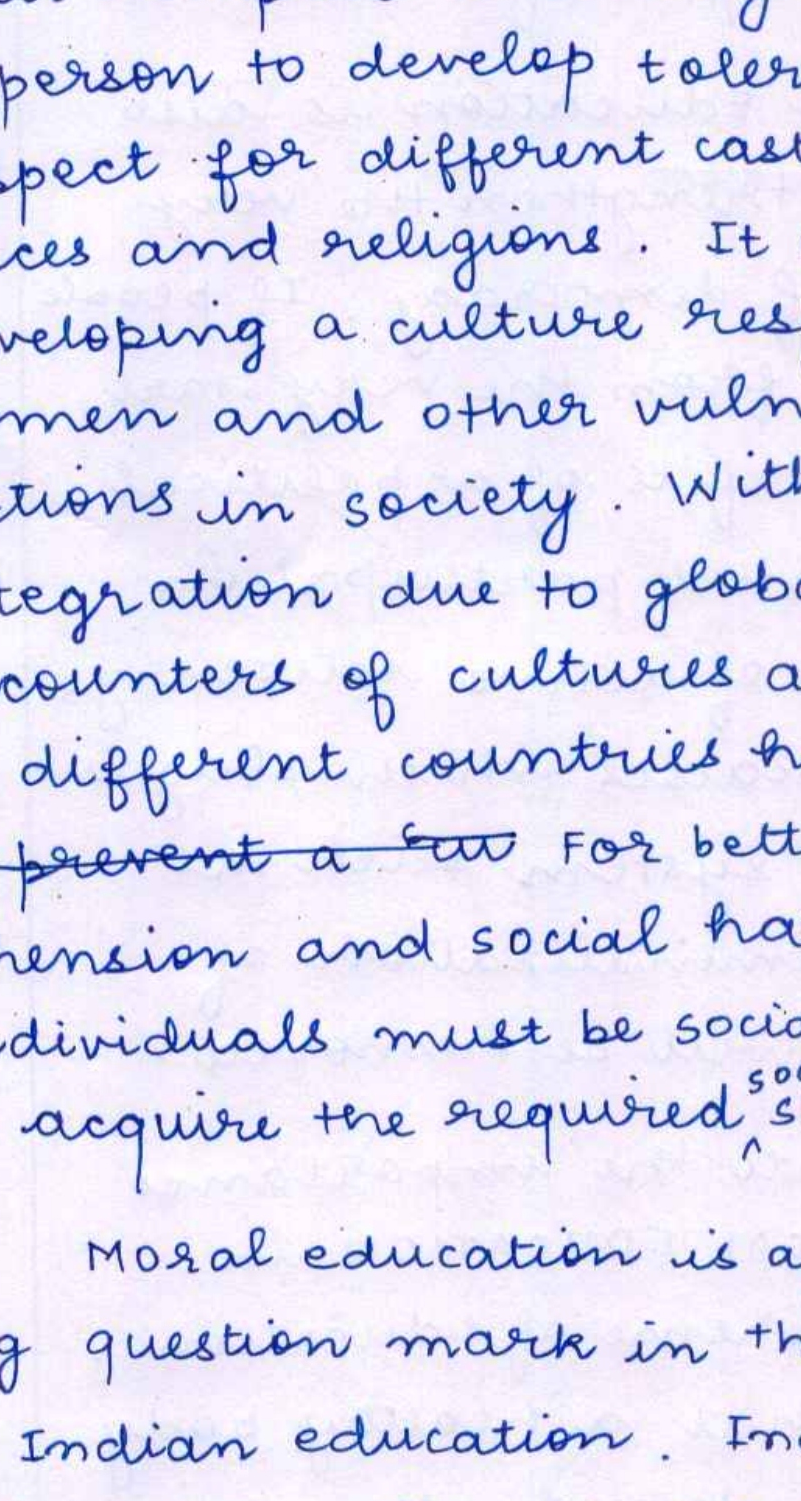 person to develop toler
spect for different cast
ces and religions. It
veloping a culture res
men and other vuln
tions in society. With
tegration due to globa
counters of cultures a
different countries h
prevent a For bett
hension and social ha
dividuals must be socia
soc
acquire the required s
Moral education is a
g question mark in th
Indian education. In